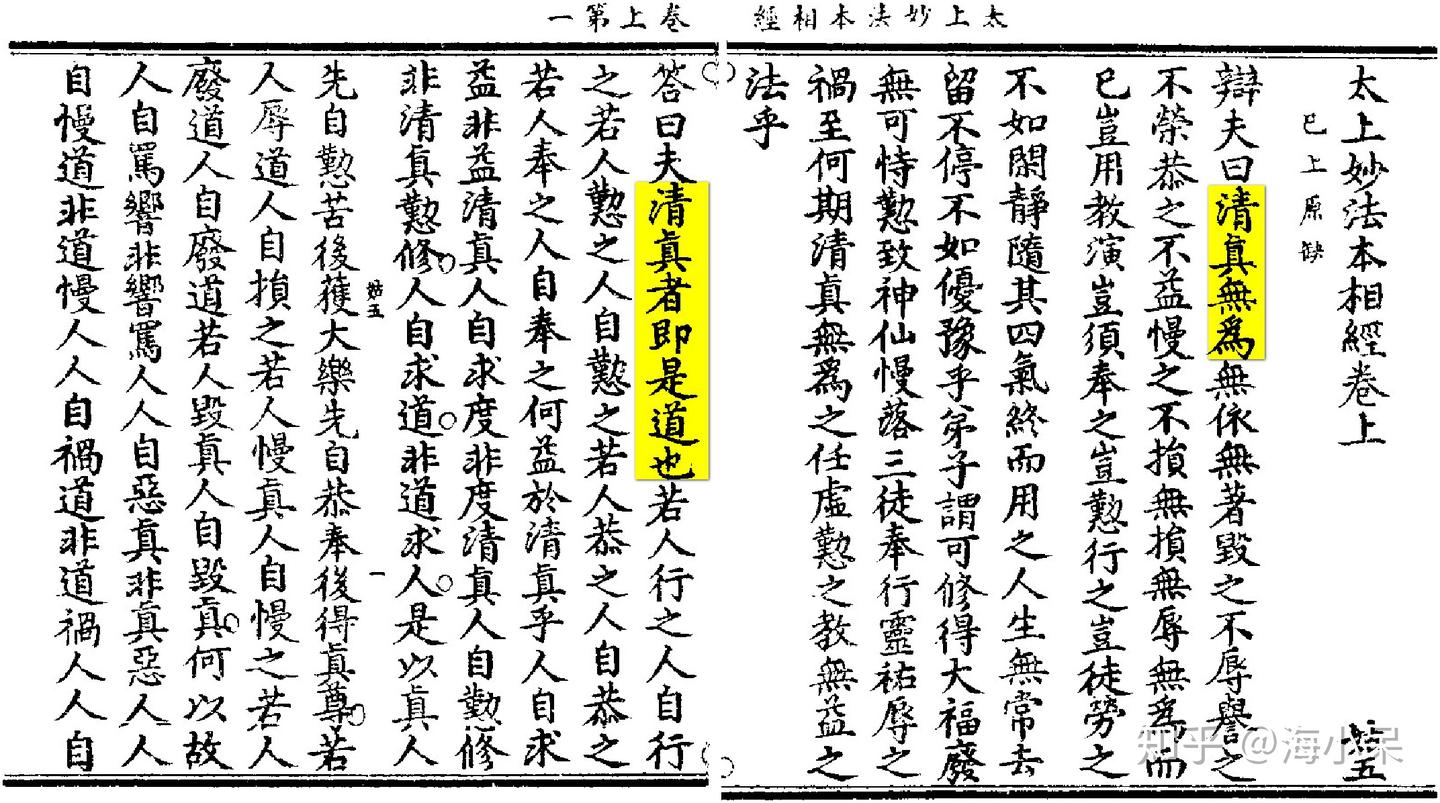 太上妙法本相經 卷上第一
太上妙法本相經卷上 五
已上原缺
辯夫曰清真無爲無依無著毀之不辱譽之
不榮恭之不益慢之不損無損無辱無爲而
已豈用教演豈須奉之豈懃行之豈徒勞之
不如閑靜隨其四氣終而用之人生無常去
留不停不如優豫乎弟子謂可修得大福廢
無可恃懃致神仙慢落三徒奉行靈祐辱之
禍至何期清真無爲之任虛懃之教無益之
法乎
答曰夫清眞者即是道也若人行之人自行
之若人懃之人自懃之若人恭之人自恭之
若人奉之人自奉之何益於清真乎人自求
益非益清真人自求度非度清真人自懃修
非清真懃修人自求道非道求人是以真人
姑五 一
先自懃苦後獲大樂先自恭奉後得真尊若
人辱道人自損之若人慢真人自慢之若人
廢道人自廢道若人毀真人自毀真何以故
人自罵響非響罵人人自惡真非真惡人人
自慢道非道慢人人自禍道非道禍人人自
知乎 @海小呆